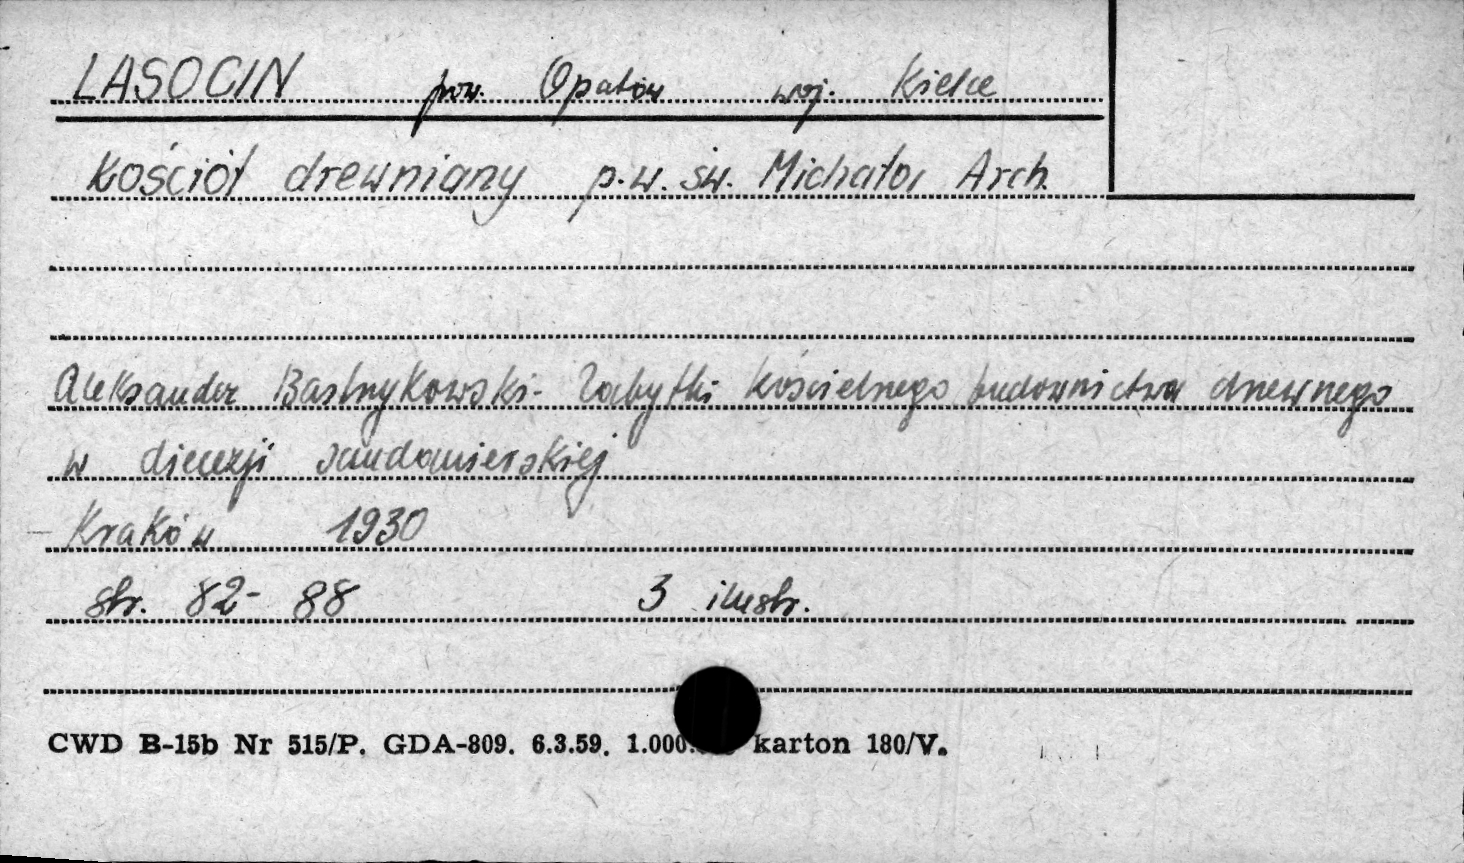 LASOCIN pow. Opatów woj. Kielce
Kościół drewniany p.w. św. Michała Arch.
Aleksander Bastrzykowski - Zabytki kościelnego budownictwa drewnego
w diecezji sandomierskiej
Kraków 1930
str. 82-88 3 ilustr.
CWD B-15b Nr 515/P. GDA-809. 6.3.59. 1.000. karton 180/V.